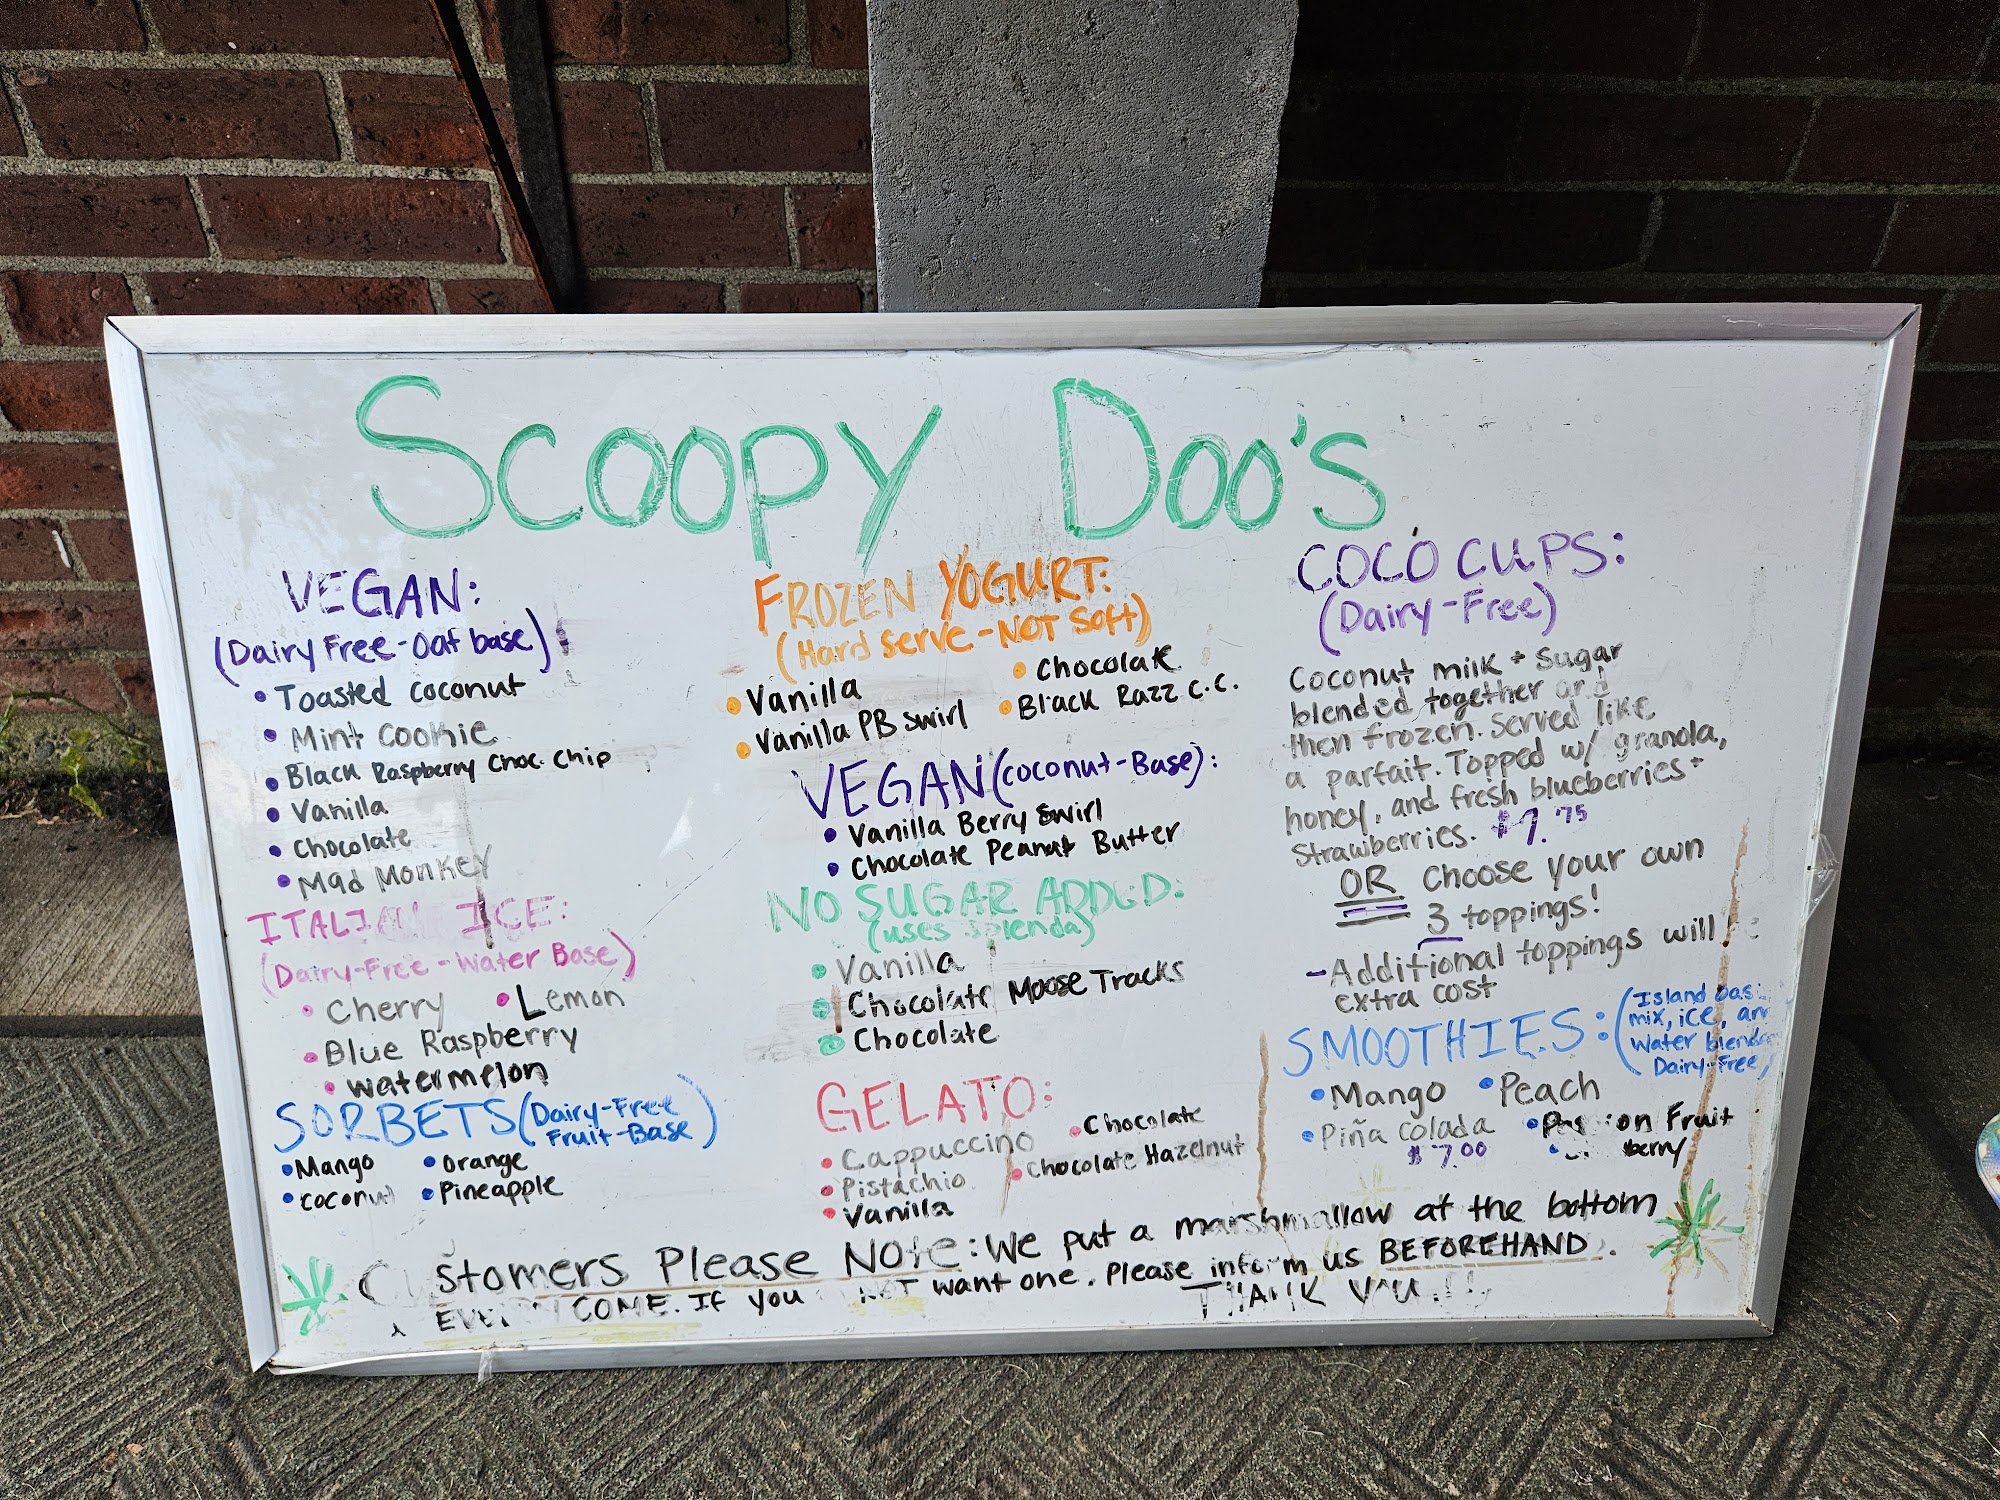 SCOOPY DOO'S
VEGAN:
(Dairy Free-Oat base)
• Toasted coconut
• Mint Cookie
• Black Raspberry Choc. Chip
• Vanilla
• Chocolate
• Mad Monkey
ITALIAN ICE:
(Dairy-Free-Water Base)
• Cherry • Lemon
• Blue Raspberry
• watermelon
SORBETS (Dairy-Free
Fruit-Base)
• Mango • Orange
• coconut • Pineapple
FROZEN YOGURT:
(Hard serve-NOT Soft)
• Vanilla • Chocolate
• Vanilla PB swirl • Black Razz C.C.
VEGAN (coconut-Base):
• Vanilla Berry Swirl
• Chocolate Peanut Butter
NO SUGAR ADDED:
(uses splenda)
• Vanilla
• Chocolate Moose Tracks
• Chocolate
GELATO:
• Cappuccino • Chocolate
• Pistachio • Chocolate Hazelnut
• Vanilla
COCO CUPS:
(Dairy-Free)
Coconut milk + Sugar
blended together and
then frozen. Served like
a parfait. Topped w/ granola,
honey, and fresh blueberries +
Strawberries. $7.75
OR Choose your own
3 toppings!
-Additional toppings will
extra cost
SMOOTHIES: (Island
mix, ice,
Water
Dairy-Free)
• Mango • Peach
• Piña Colada • Fruit
$7.00 • berry
Customers Please Note: We put a marshmallow at the bottom
CONE. If you NOT want one. Please inform us BEFOREHAND.
THANK YOU!!!